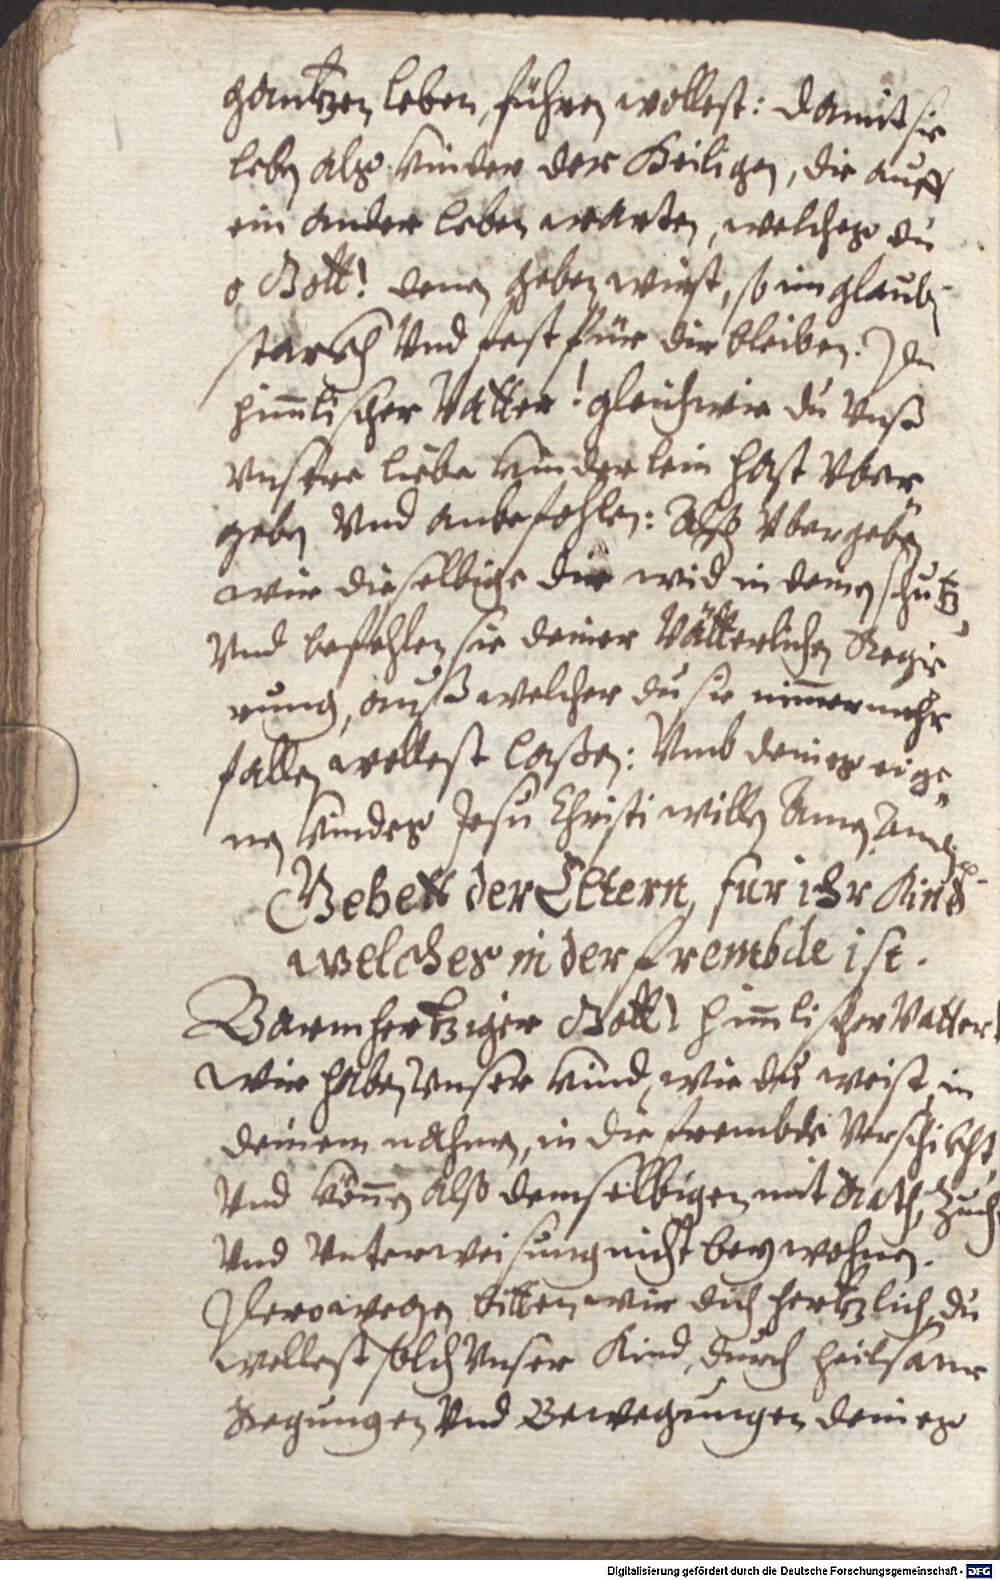 gantzen leben, führen wollest: damit sie
leben alß kinder der Heiligen, die auff
ein ander leben warten, welches du
o Gott! denen geben wirst, so im glauben
starck Vnd fest für dir bleiben. Du
himlischer Vatter! gleichwie du Vnß
Vnsere liebe kinderlein hast Vber„
geben Vnd anbefohlen: Alß Vbergeben
wir dieselbige dir wid in deinen schutz,
Vnd befehlen sie deiner Vätterlichen Regie
rung, auß welcher du sie nimmermehr
fallen wollest laßen: Vmb deines eige„
nen Kindes Jesu Christi willen Amen Amen.
Gebett der Eltern, für ihr Kind
welches in der frembde ist.
Barmhertziger Gott! himlischer Vatter!
Wir haben Vnser kind, wie du weist, in
deinem nahmen, in die frembde Verschickt,
Vnd können alß demselbigen mit Rath, Zucht
Vnd Vnterweisung nicht bey wohnen.
Derowegen bitten wir dich hertzlich, du
wollest solch Vnser Kind, durch heilsame
Regungen Vnd Bewegungen deines
Digitalisierung gefördert durch die Deutsche Forschungsgemeinschaft - DFG